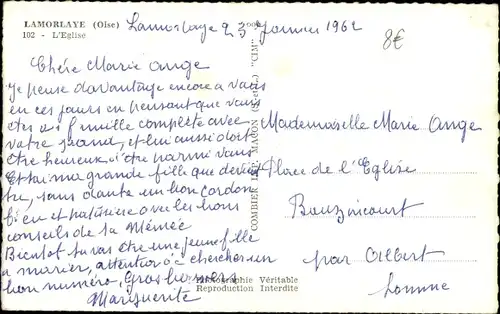 LAMORLAYE (Oise)
102 - L'Eglise
Lamorlaye 23 Janvier 1962
8€
Chère Marie Ange
Je pense davantage encore a vous
en ces jours en pensant que vous
êtes a famille complète avec
votre grand, et lui aussi doit
être heureux d'être parmi vous
Et toi ma grande fille que deviens
tu, sans doute un bon cordon
bleu et patissière avec les bons
conseils de la Mémée
Bientôt tu vas être une jeune fille
a marier, attention a chercher un
bon numéro, Gros
Marguerite
COMBIER IMP. MACON "CIM"
Mademoiselle Marie Ange
Place de l'Eglise
Bouzincourt
par Albert
Somme
Photographie Véritable
Reproduction Interdite